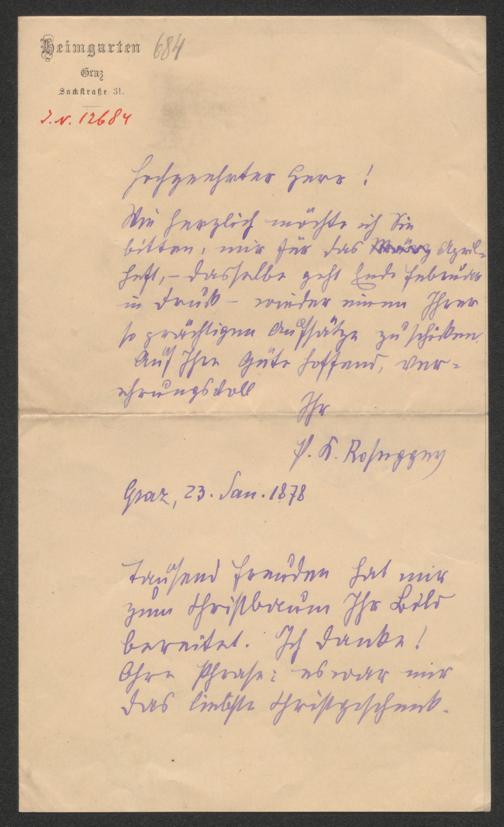 Heimgarten 684
Graz
Sackstraße 31.
I.N. 12684
Hochgeehrter Herr!
Wie herzlich möchte ich Sie
bitten, mir für das März April-
heft, – dasselbe geht Ende Februar
in Druck – wieder einen Ihrer
so prächtigen Aufsätze zu schicken.
Auf Ihre Güte hoffend, ver-
ehrungsvoll
Ihr
P. K. Rosegger
Graz, 23. Jan. 1878
Tausend Freuden hat mir
zum Christbaum Ihr Bild
bereitet. Ich danke!
Ohne Phrase: es war mir
das liebste Christgeschenk.